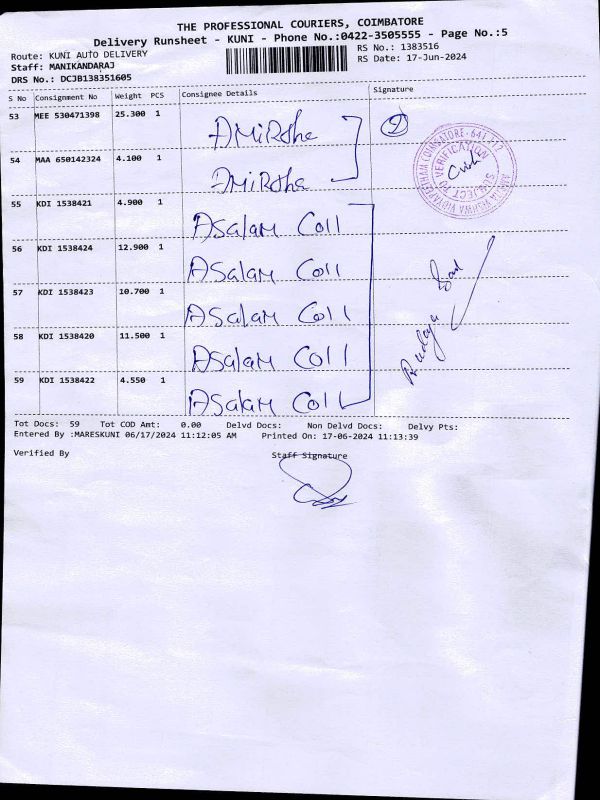 THE PROFESSIONAL COURIERS, COIMBATORE
Delivery Runsheet - KUNI - Phone No.:0422-3505555 - Page No.:5
Route: KUNI AUTO DELIVERY
RS No.: 1383516
Staff: MANIKANDARAJ
RS Date: 17-Jun-2024
DRS No.: DCJB138351605
S No Consignment No Weight PCS Consignee Details Signature
53 MEE 530471398 25.300 1 AMiRtha 2
54 MAA 650142324 4.100 1 AMiRtha
55 KDI 1538421 4.900 1 ASalaM Coll
56 KDI 1538424 12.900 1 ASalaM Coll
57 KDI 1538423 10.700 1 ASalaM Coll
58 KDI 1538420 11.500 1 ASalaM Coll
59 KDI 1538422 4.550 1 ASalaM Coll
AMRITA VISHWA VIDYAPEETHAM COIMBATORE-641 112
SUBJECT TO VERIFICATION
Tot Docs: 59 Tot COD Amt: 0.00 Delvd Docs: Non Delvd Docs: Delvy Pts:
Entered By :MARESKUNI 06/17/2024 11:12:05 AM Printed On: 17-06-2024 11:13:39
Verified By Staff Signature